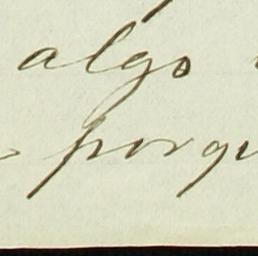 algo
porqu